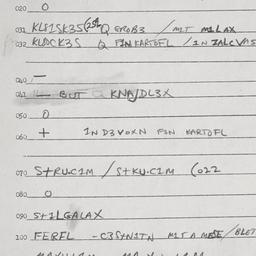 020 O
031 KLF1SK3S(25L Q EROB3 / MIT M1LAX
032 KLOCK3S Q F1NKARTOFL / 1N ZALCVAS
040 —
041 L BUT Q KNA/DL3X
050 O
060 + 1N D3VOXN F1N KARTOFL
070 STRUC1M / STKU.C1M (022
080 O
090 ST1LGALAX
100 FERFL - C3STN1TN M1T A MESE/BLET